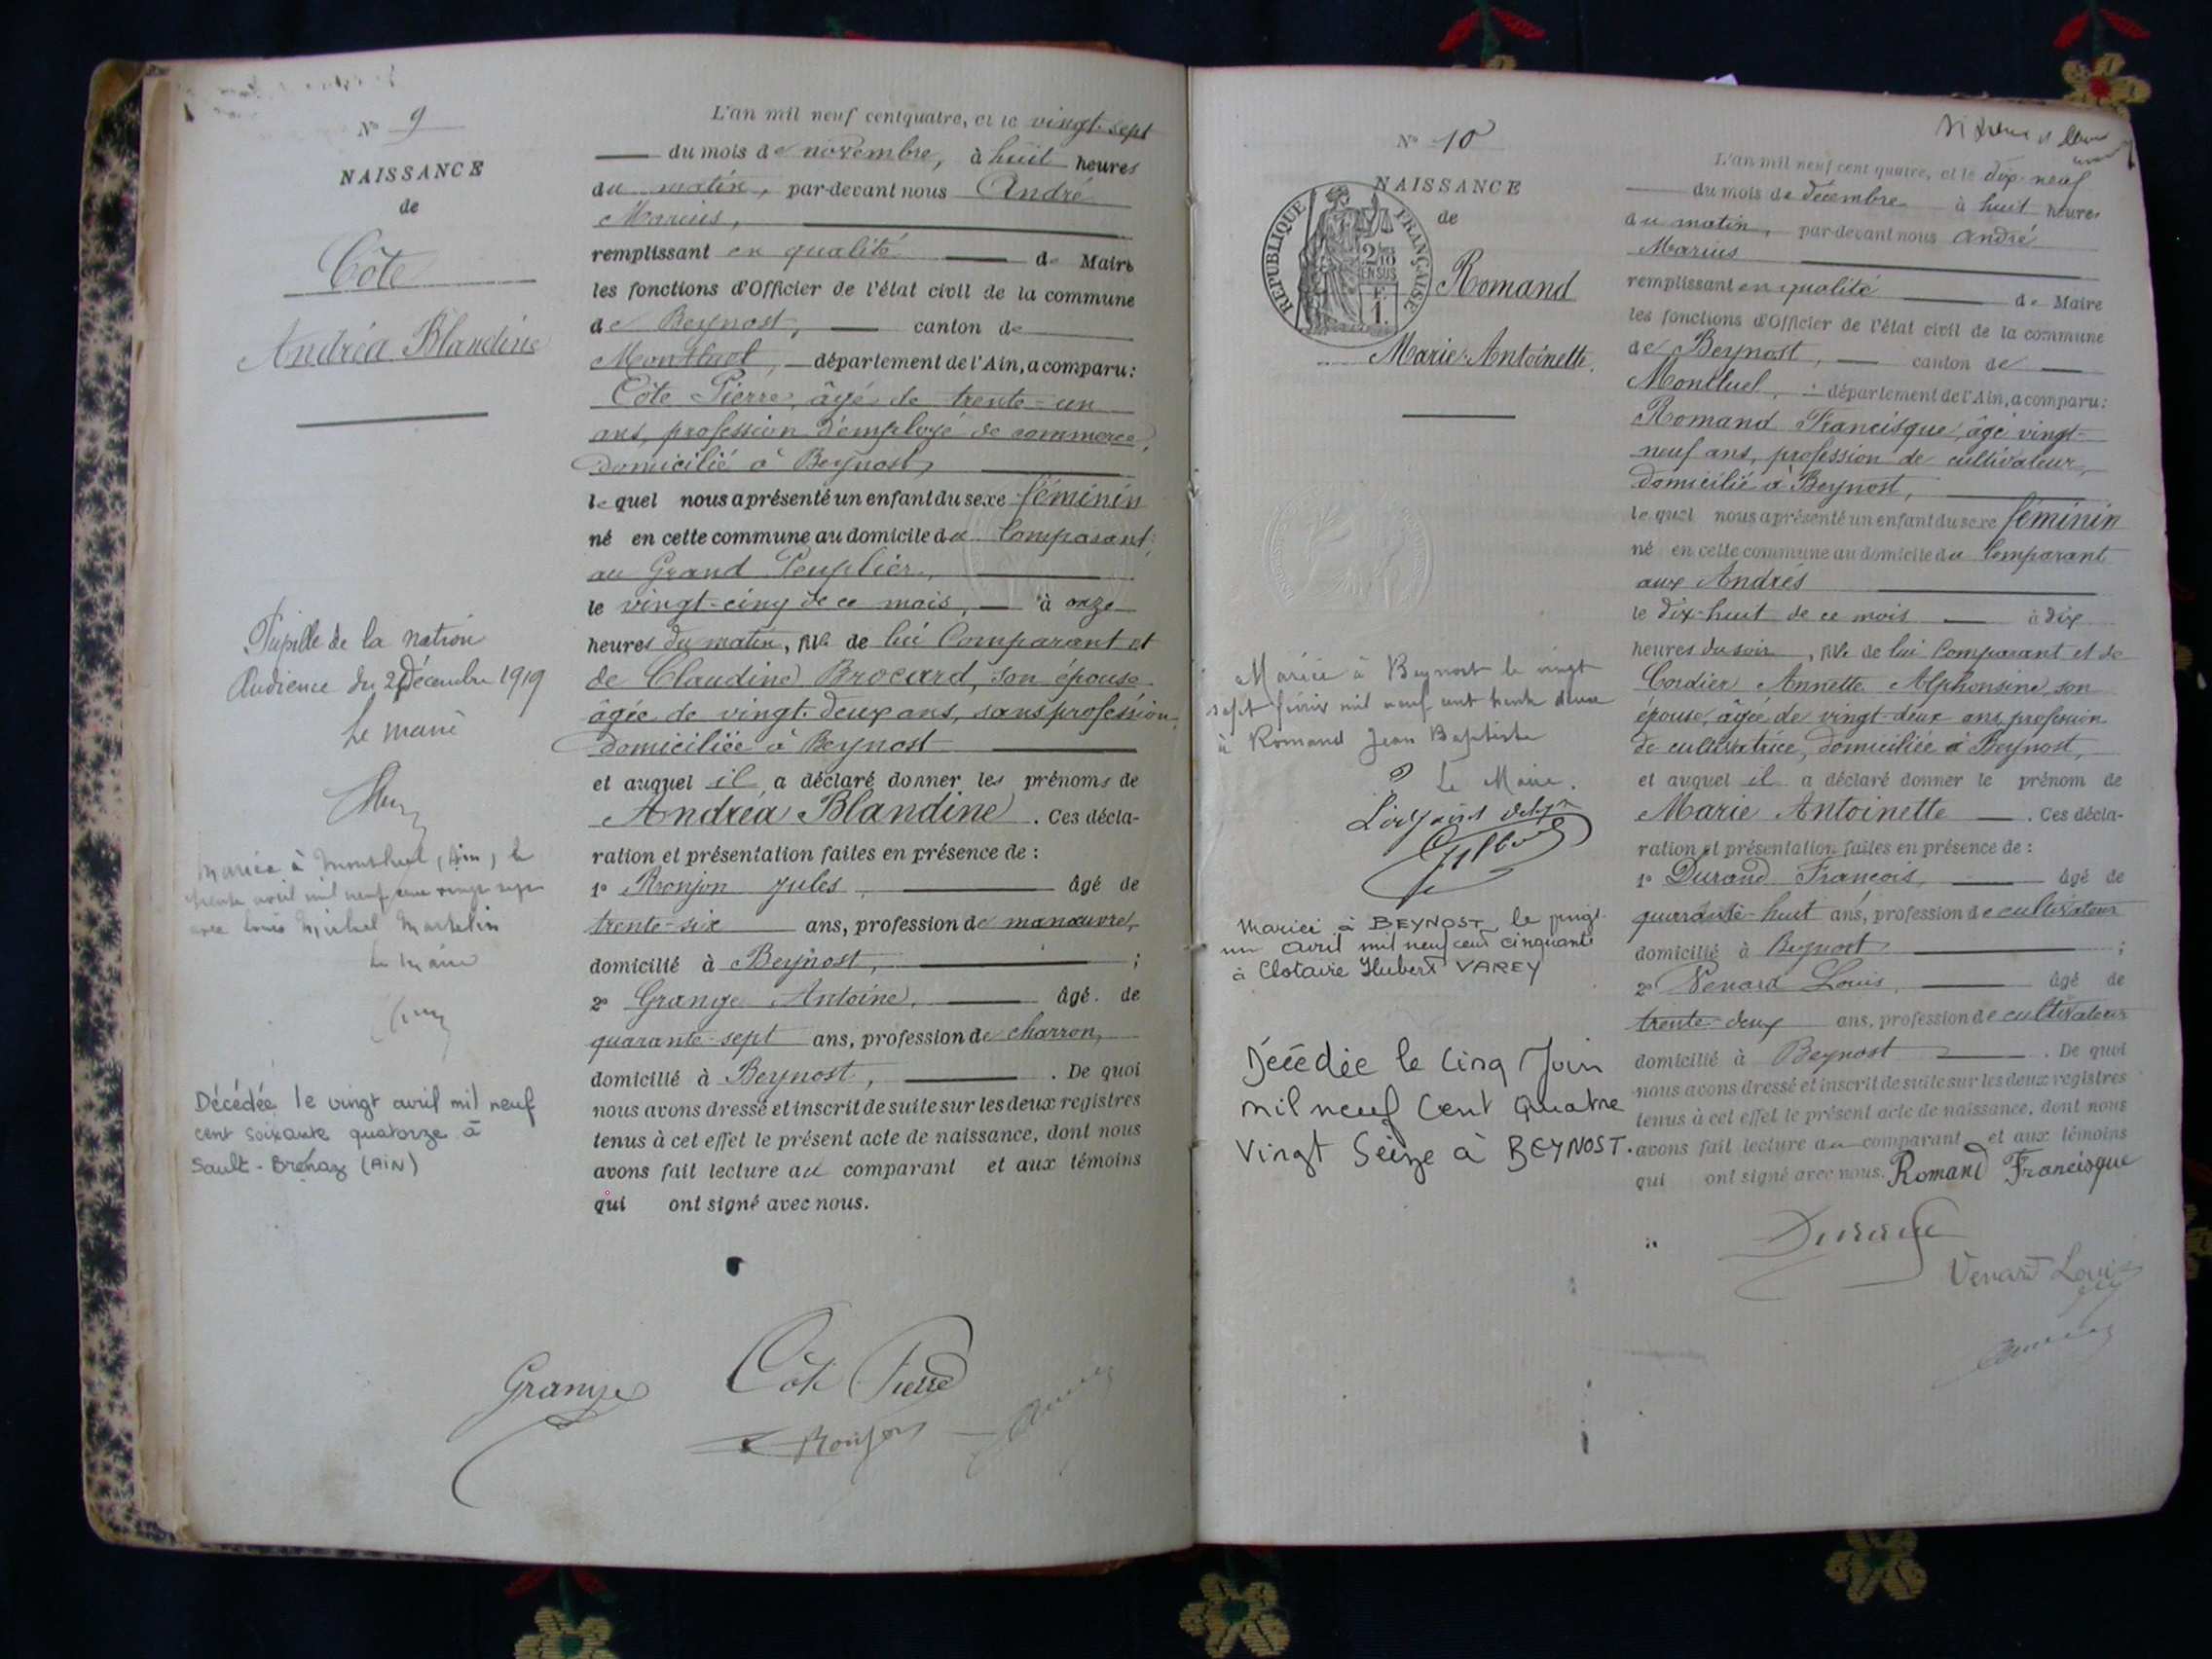 N° 9
NAISSANCE
de
Côte
Andréa Blandine
Pupille de la nation
Audience du 2 Décembre 1919
Le maire
Mariée à Montluel, (Ain), le
trente avril mil neuf cent vingt sept
avec Louis Michel Martelin
Le Maire
Décédée le vingt avril mil neuf
cent soixante quatorze à
Sault-Brénaz (AIN)
L'an mil neuf cent quatre, et le vingt-sept
du mois de novembre, à huit heures
du matin, par-devant nous André
Marius,
remplissant en qualité de Maire
les fonctions d'Officier de l'état civil de la commune
de Beynost, canton de
Montluel, département de l'Ain, a comparu:
Côte Pierre, âgé de trente-un
ans, profession d'employé de commerce,
domicilié à Beynost,
lequel nous a présenté un enfant du sexe féminin
né en cette commune au domicile du Comparant,
au Grand Peuplier,
le vingt-cinq de ce mois, à onze
heures du matin, fille de lui Comparant et
de Claudine Brocard, son épouse
âgée de vingt-deux ans, sans profession,
domiciliée à Beynost
et auquel il a déclaré donner les prénoms de
Andréa Blandine. Ces décla-
ration et présentation faites en présence de :
1° Ronjon Jules, âgé de
trente-six ans, profession de manœuvre,
domicilié à Beynost, ;
2° Grange Antoine, âgé de
quarante-sept ans, profession de charron,
domicilié à Beynost, . De quoi
nous avons dressé et inscrit de suite sur les deux registres
tenus à cet effet le présent acte de naissance, dont nous
avons fait lecture au comparant et aux témoins
qui ont signé avec nous.
Grange Côte Pierre
Ronjon
N° 10
NAISSANCE
de
REPUBLIQUE FRANÇAISE
2/10
EN SUS
F.
1.
Romand
Marie-Antoinette.
Mariée à Beynost le vingt
sept février mil neuf cent trente deux
à Romand Jean Baptiste
Le Maire.
Mariée à BEYNOST le vingt
un avril mil neuf cent cinquante
à Clotaire Hubert VAREY
Décédée le Cinq Juin
mil neuf Cent Quatre
Vingt Seize à BEYNOST.
L'an mil neuf cent quatre, et le dix-neuf
du mois de décembre à huit heures
du matin, par-devant nous André
Marius
remplissant en qualité de Maire
les fonctions d'Officier de l'état civil de la commune
de Beynost, canton de
Montluel, département de l'Ain, a comparu:
Romand Francisque, âgé vingt-
neuf ans, profession de cultivateur,
domicilié à Beynost,
lequel nous a présenté un enfant du sexe féminin
né en cette commune au domicile du Comparant
aux Andrés
le dix-huit de ce mois à dix
heures du soir, fille de lui Comparant et de
Cordier Annette Alphonsine son
épouse, âgée de vingt-deux ans, profession
de cultivatrice, domiciliée à Beynost,
et auquel il a déclaré donner le prénom de
Marie Antoinette. Ces décla-
ration et présentation faites en présence de :
1° Durand François, âgé de
quarante-huit ans, profession de cultivateur
domicilié à Beynost ;
2° Venard Louis, âgé de
trente-deux ans, profession de cultivateur
domicilié à Beynost . De quoi
nous avons dressé et inscrit de suite sur les deux registres
tenus à cet effet le présent acte de naissance, dont nous
avons fait lecture au comparant et aux témoins
qui ont signé avec nous. Romand Francisque
Durand
Venard Louis